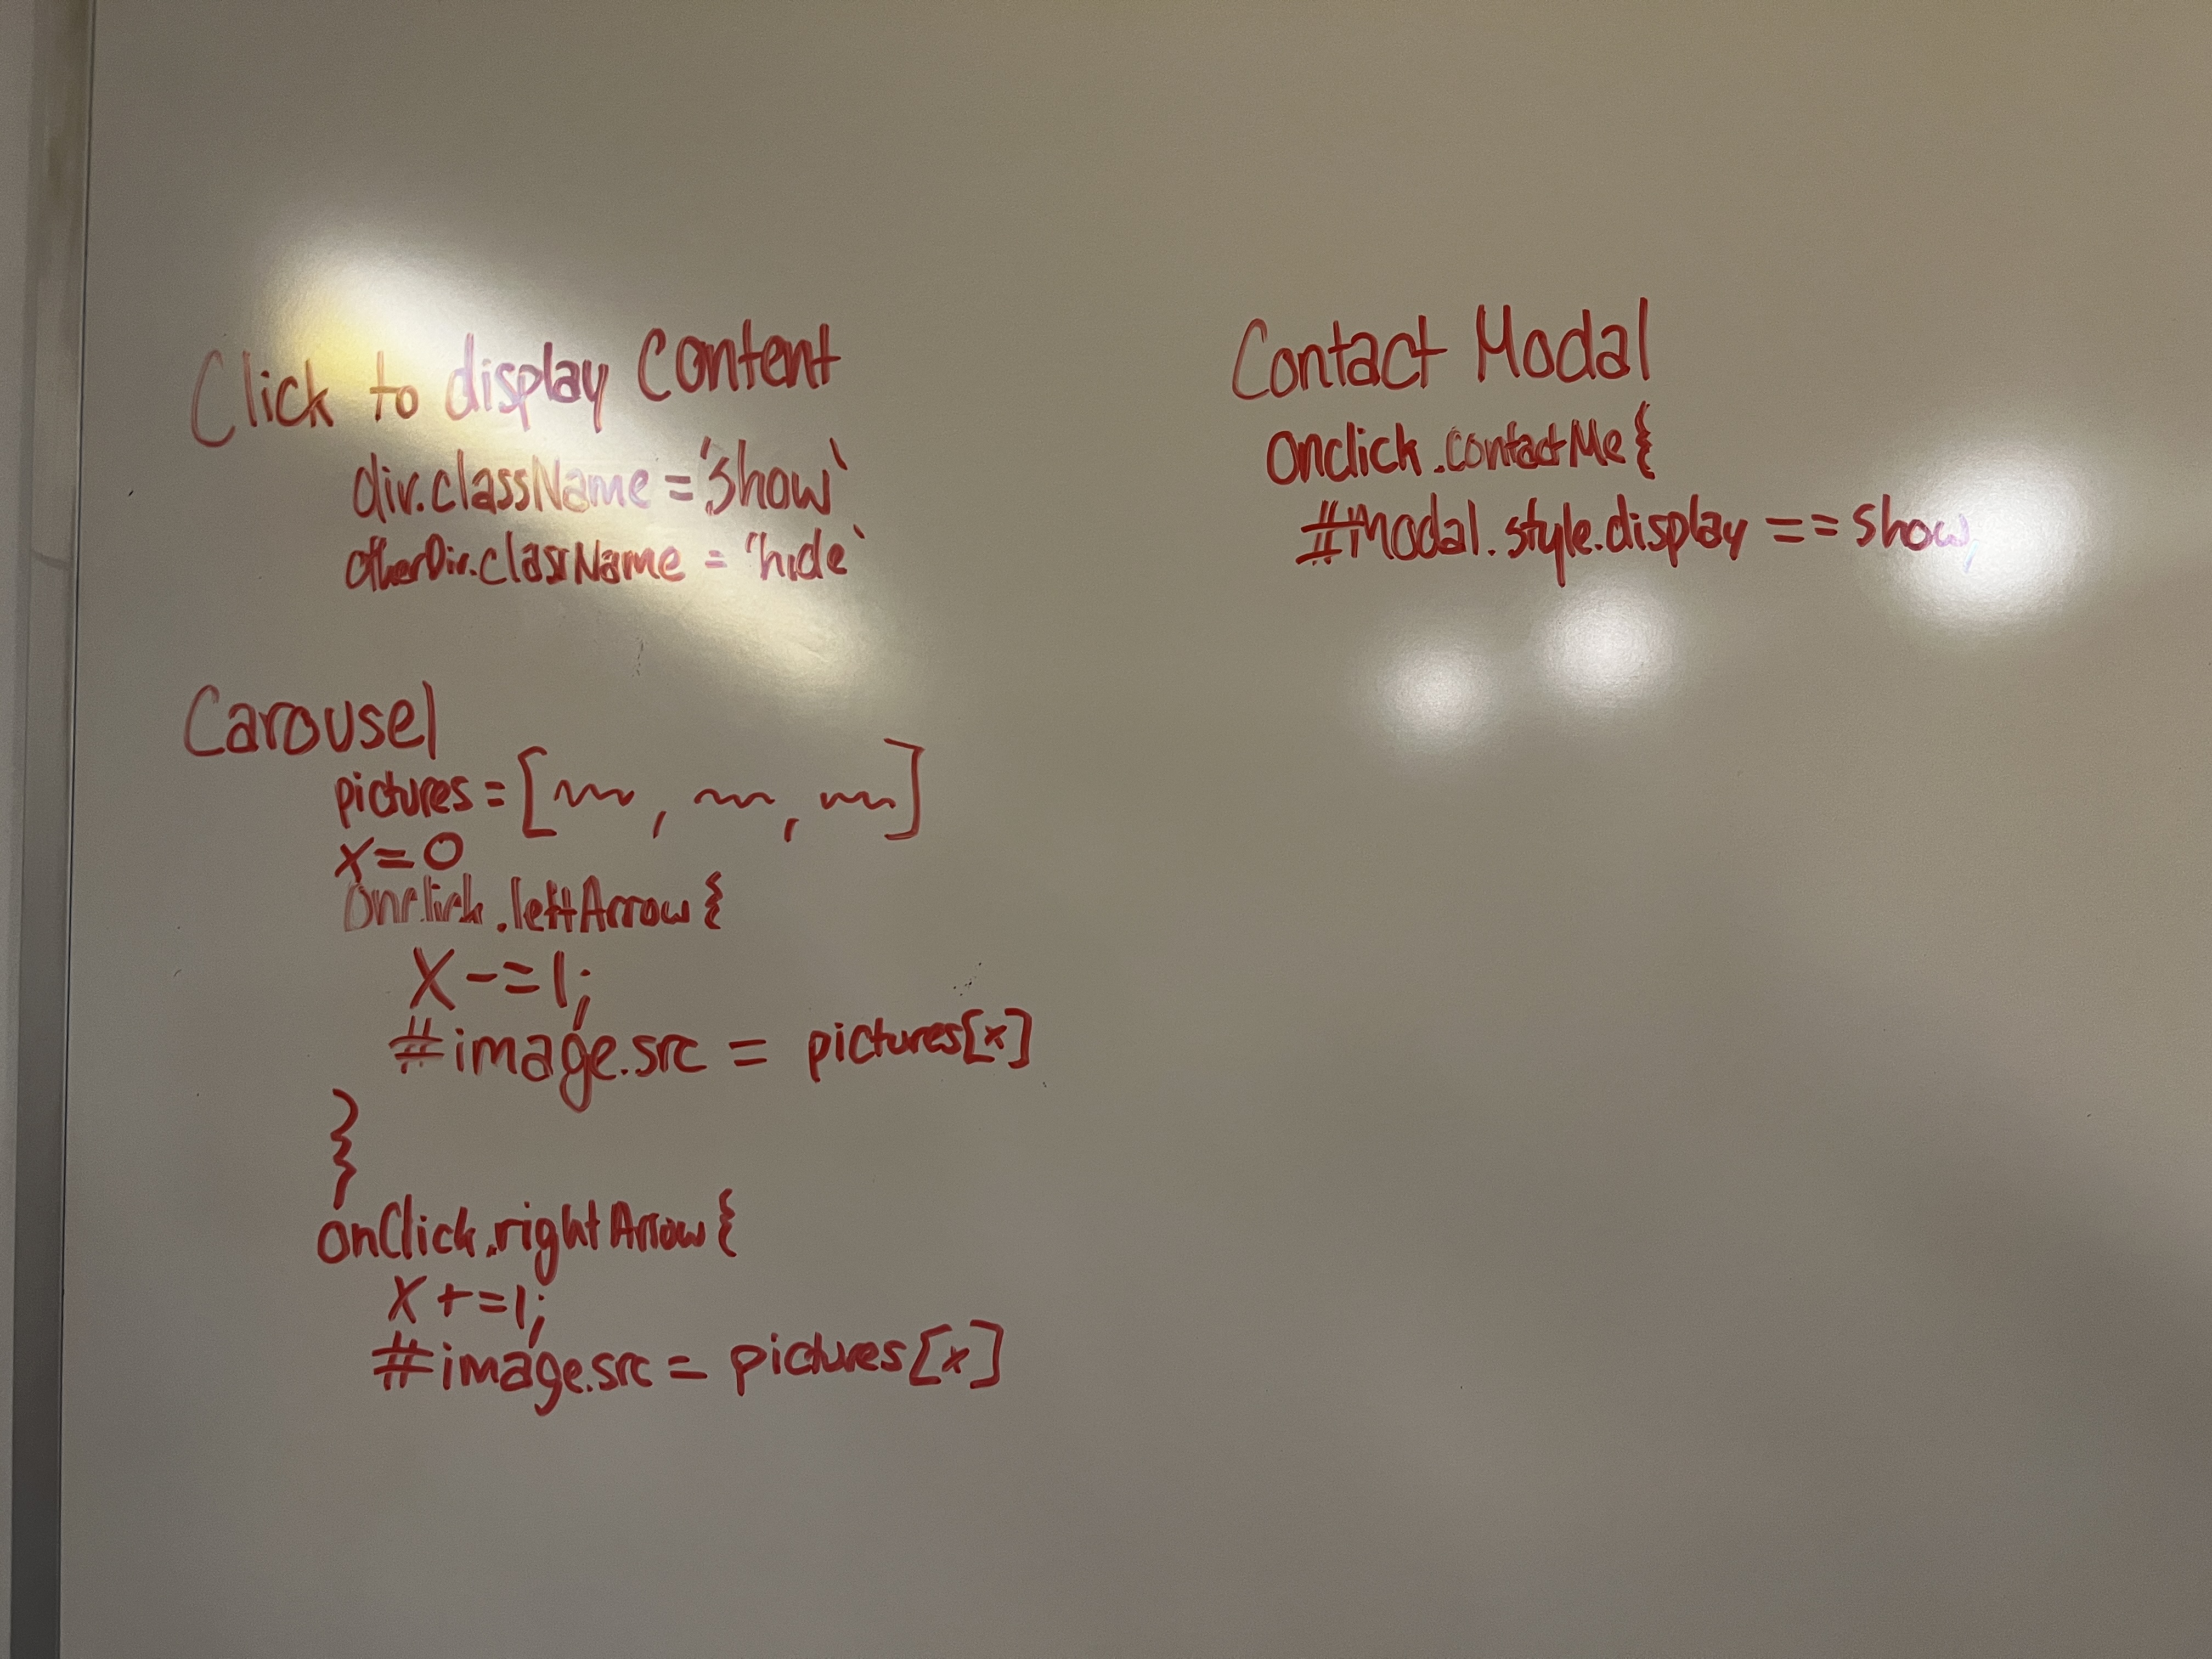 Click to display Content
div.className = 'show'
otherDiv.className = 'hide'
Carousel
pictures = [ , , ]
x=0
Onclick.leftArrow {
X -= 1;
#image.src = pictures[x]
}
onClick.rightArrow {
X += 1;
#image.src = pictures[x]
Contact Modal
Onclick.contactMe {
#Modal.style.display == show,